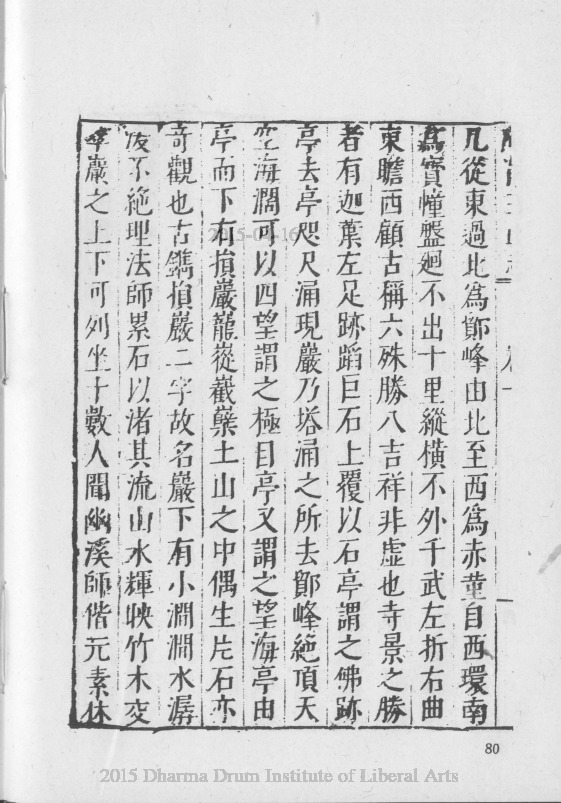 凡從東過北為鄮峰由北至西為赤堇自西環南
為寶幢盤迴不出十里縱橫不外千武左折右曲
東瞻西顧古稱六殊勝八吉祥非虛也寺景之勝
者有迦葉左足跡蹈巨石上覆以石亭謂之佛跡
亭去亭咫尺涌現巖乃塔涌之所去鄮峰絶頂天
空海濶可以四望謂之極目亭又謂之望海亭由
亭而下有損巖巃嵸巀嶪土山之中偶生片石亦
奇觀也古鐫損巖二字故名巖下有小澗澗水潺
不絶理法師累石以渚其流山水輝映竹木交
巖之上下可列坐十數人聞幽溪師偕元素休
2015-04-16
80
2015 Dharma Drum Institute of Liberal Arts